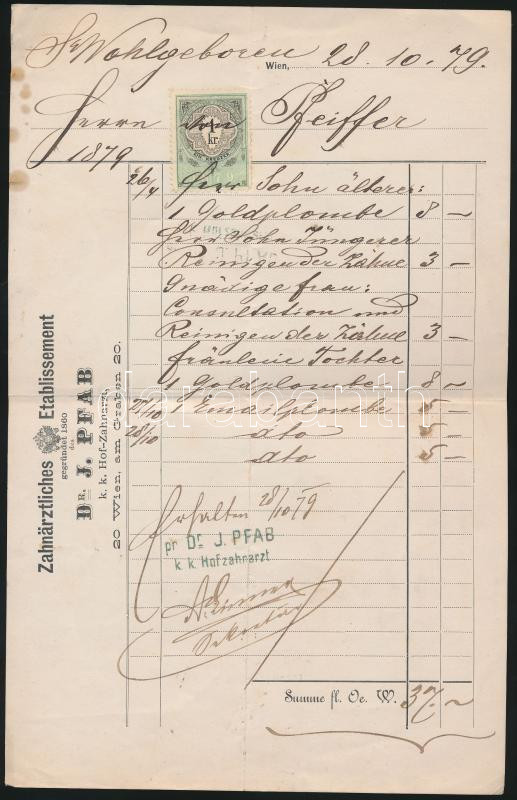 Sr Wohlgeboren
Wien, 28. 10. 79.
Herrn von Pfeiffer
1
kr.
1879
26/4 Herr Sohn älterer:
1 Goldplombe 8 –
Herr Sohn Jüngerer
Reinigen der Zähne 3 –
Gnädige frau:
Consultation und
Reinigen der Zähne 3 –
fräulein Tochter
1 Goldplombe 8 –
27/10 1 Emailplombe 5 –
28/10 dto 5 –
dto 5 –
Erhalten 28/10 79
pr Dr. J. PFAB
k. k. Hofzahnarzt
Sekretär
Summe fl. Oe. W. 37. –
Zahnärztliches Etablissement
gegründet 1860
des
DR. J. PFAB
k. k. Hof-Zahnarzt,
20 Wien, am Graben 20.
darabanth